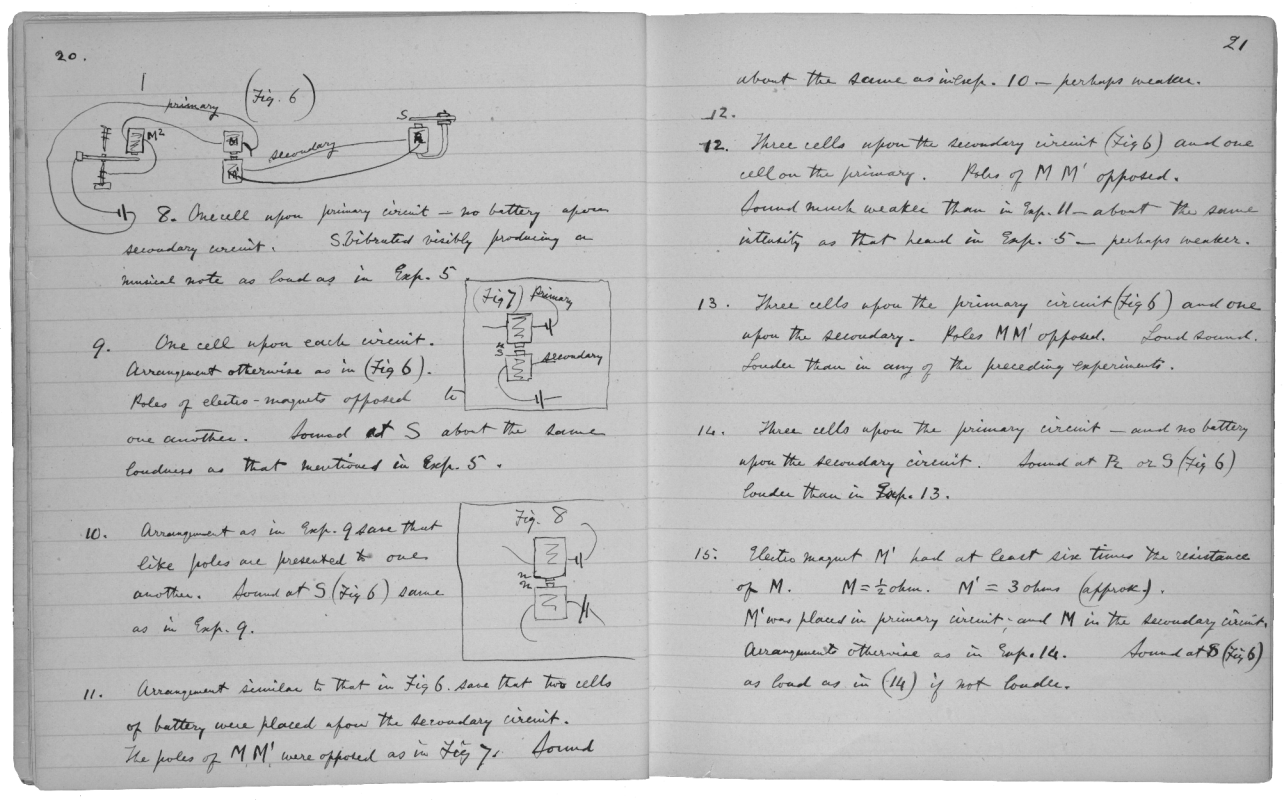 20.
primary (Fig. 6)
M²
S
secondary
8. One cell upon primary circuit — no battery upon
secondary circuit. S vibrated visibly producing a
musical note as loud as in Exp. 5.
(Fig 7) Primary
n
S
secondary
9. One cell upon each circuit.
Arrangement otherwise as in (Fig 6).
Poles of electro-magnets opposed to
one another. Sound at S about the same
loudness as that mentioned in Exp. 5.
Fig. 8
n
n
10. Arrangement as in Exp. 9 save that
like poles are presented to one
another. Sound at S (Fig 6) same
as in Exp. 9.
11. Arrangement similar to that in Fig 6. save that two cells
of battery were placed upon the secondary circuit.
The poles of M, M', were opposed as in Fig 7. Sound
21
about the same as in Exp. 10 — perhaps weaker.
12.
12. Three cells upon the secondary circuit (Fig 6) and one
cell on the primary. Poles of M M' opposed.
Sound much weaker than in Exp. 11 — about the same
intensity as that heard in Exp. 5 — perhaps weaker.
13. Three cells upon the primary circuit (Fig 6) and one
upon the secondary. Poles M M' opposed. Loud sound.
Louder than in any of the preceding experiments.
14. Three cells upon the primary circuit — and no battery
upon the secondary circuit. Sound at or S (Fig 6)
louder than in Exp. 13.
15. Electro magnet M' had at least six times the resistance
of M. M = ½ ohm. M' = 3 ohms (approx.).
M' was placed in primary circuit; and M in the secondary circuit.
Arrangements otherwise as in Exp. 14. Sound at S (Fig 6)
as loud as in (14) if not louder.